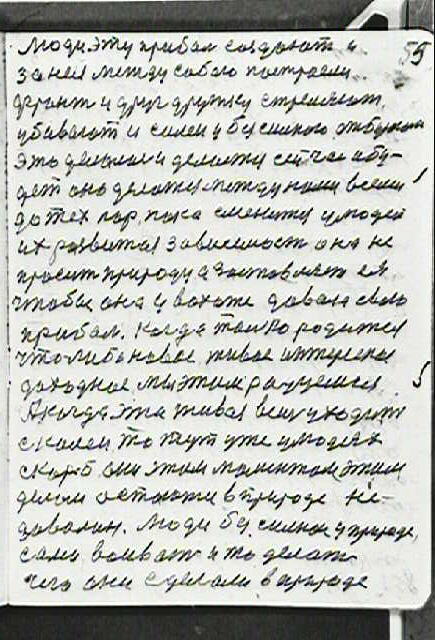 люди эту прибал создают и 55
за неё между собою построели
фронт и друг дружку стреляют
убивают и силен у бессильного отбирает
это делалось и делается сейчас и бу-
дет оно делатся между нами всеми
до тех пор, пока сменится у людей
их развитая зависемость она не
просит природу а заставляет её
чтобы она и вохоте давала свою
прибал. Когда только родится
что либо новое, живое интересное
доходное мы этим радуемся 5
А когда эта живая вещ уходит
с колеи то тут уже у людях
скорб они этим моментом этим
делом остаются в природе не-
довольны. Люди бессильные у природе,
сами воюют и то делают
чего они сделали в природе